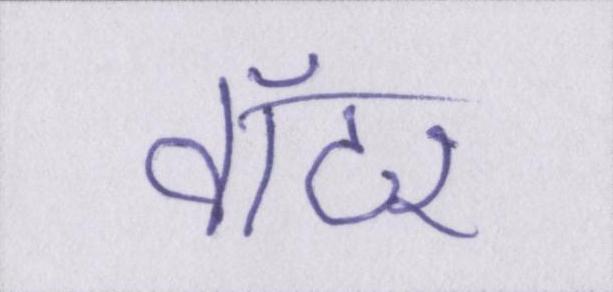 वॉटर